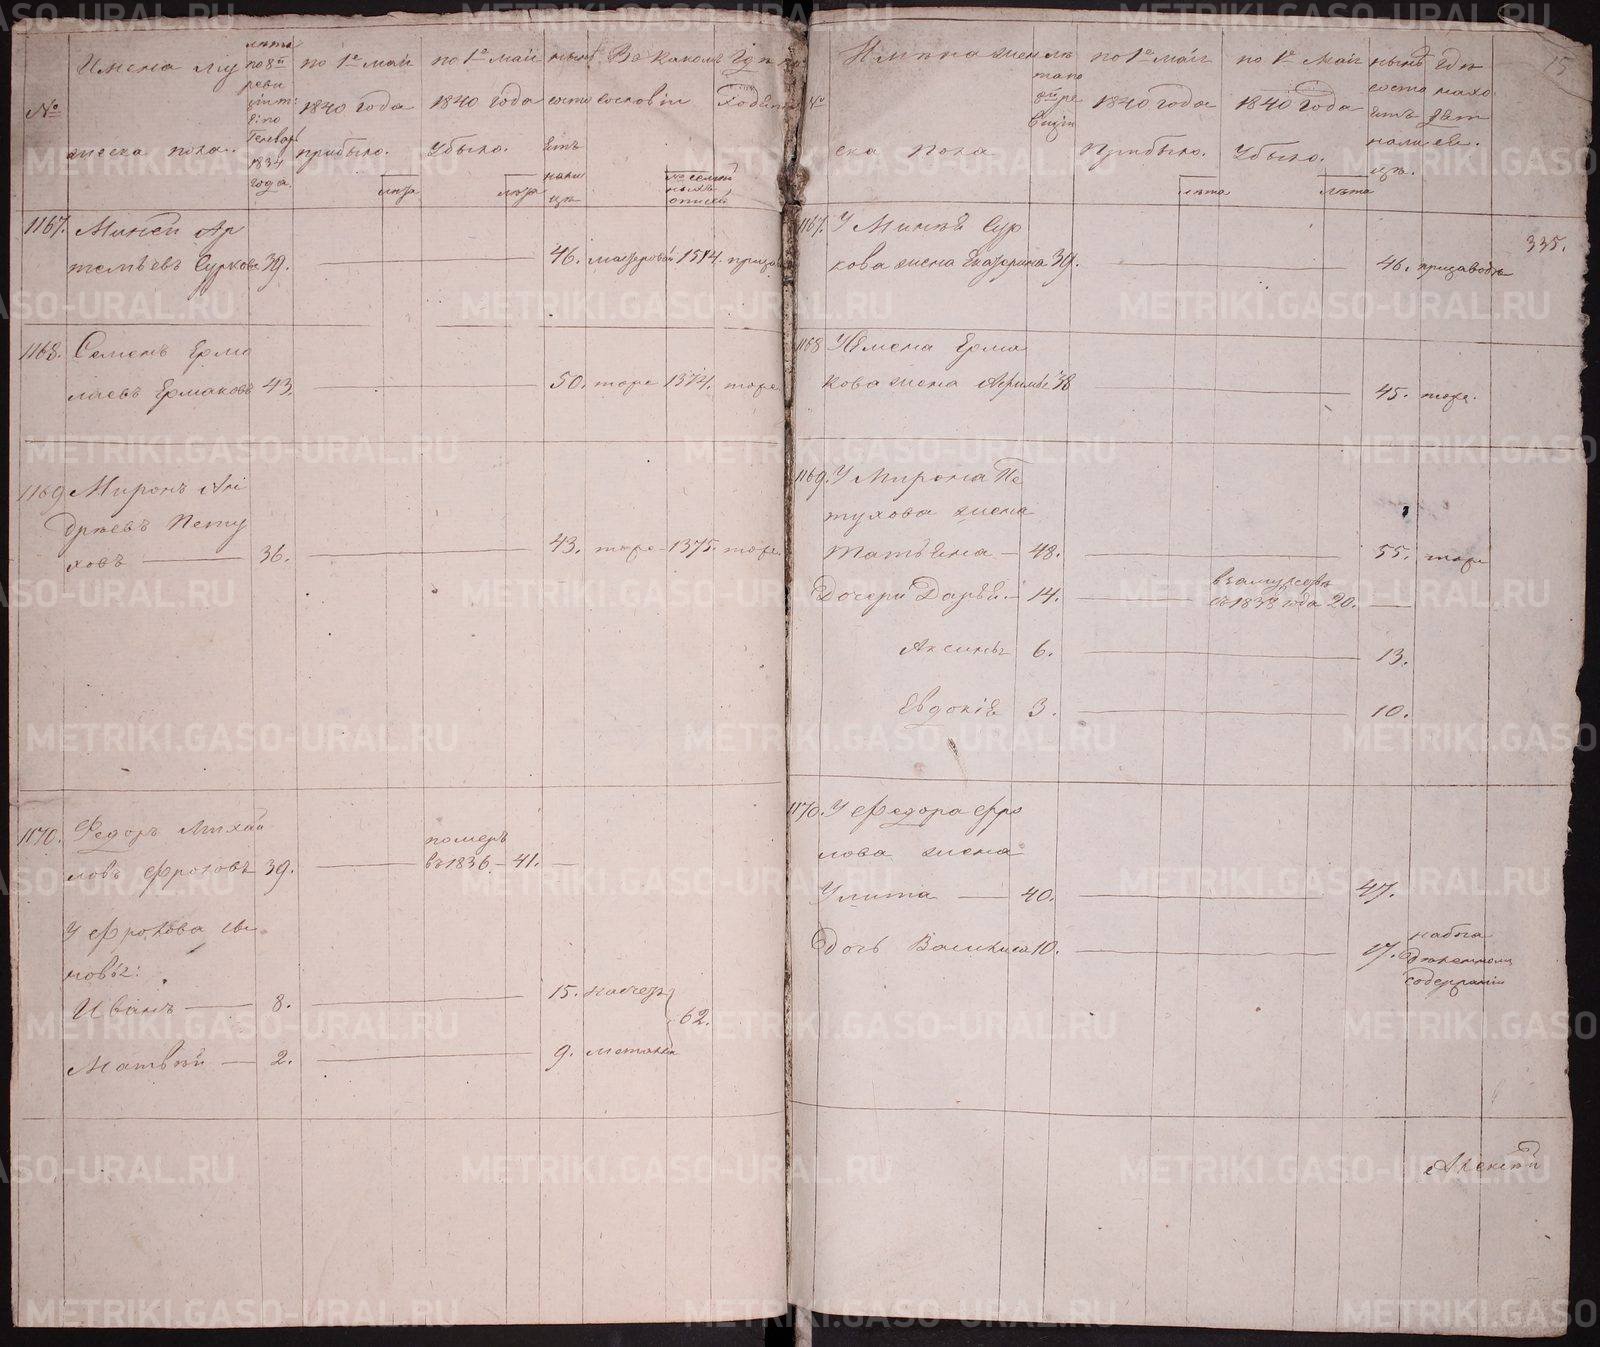 №
Имена му
жеска пола.
лѣта
по 8й
реви
зіи
по
Генварь
1834
года.
по 1е май
1840 года
прибыло.
лѣта
по 1е май
1840 года
убыло.
лѣта
нынѣ
состо
итъ
нали
цѣ
Въ какомъ
сословіи
№ семей
ныхъ
описей
1167. Миней Ар
темьевъ Сурковъ 39. 46. мастеровой 1514. призавод
1168. Семенъ Ермо
лаевъ Ермаковъ 43. 50. тоже 1374. тоже.
1169 Миронъ Ан
дрѣевъ Пету
ховъ 36. 43. тоже 1375. тоже.
1170. Федоръ Михай
ловъ Фроловъ 39. померъ
въ 1836 41.
У Фролова сы
новья:
Иванъ 8. 15.
62.
Матвѣй 2. 9.
15
№
Имена женс
ска пола
лѣ
та по
8й ре
визіи
по 1е май
1840 года
Прибыло.
лѣта
по 1е май
1840 года
Убыло.
лѣта
нынѣ
состо
итъ
нали
цѣ.
гдѣ
нахо
дят
ся.
335.
1167. У Минея Сур
кова жена Екатерина 39. 46. призаводѣ
1168 У Семена Ерма
кова жена 38 45. тоже.
1169. У Мирона Пе
тухова жена
Татьяна 48. 55. тоже
Дочери Дарья 14. взамужевъ
съ 1838 года 20.
Аксинья 6. 13.
Евдокія 3. 10.
1170. У Федора Фро
лова жена
Улита 40. 47.
Дочь Василиса 10. 17. на бога
дѣленномъ
содержаніи
Алексѣй
METRIKI.GASO-URAL.RU